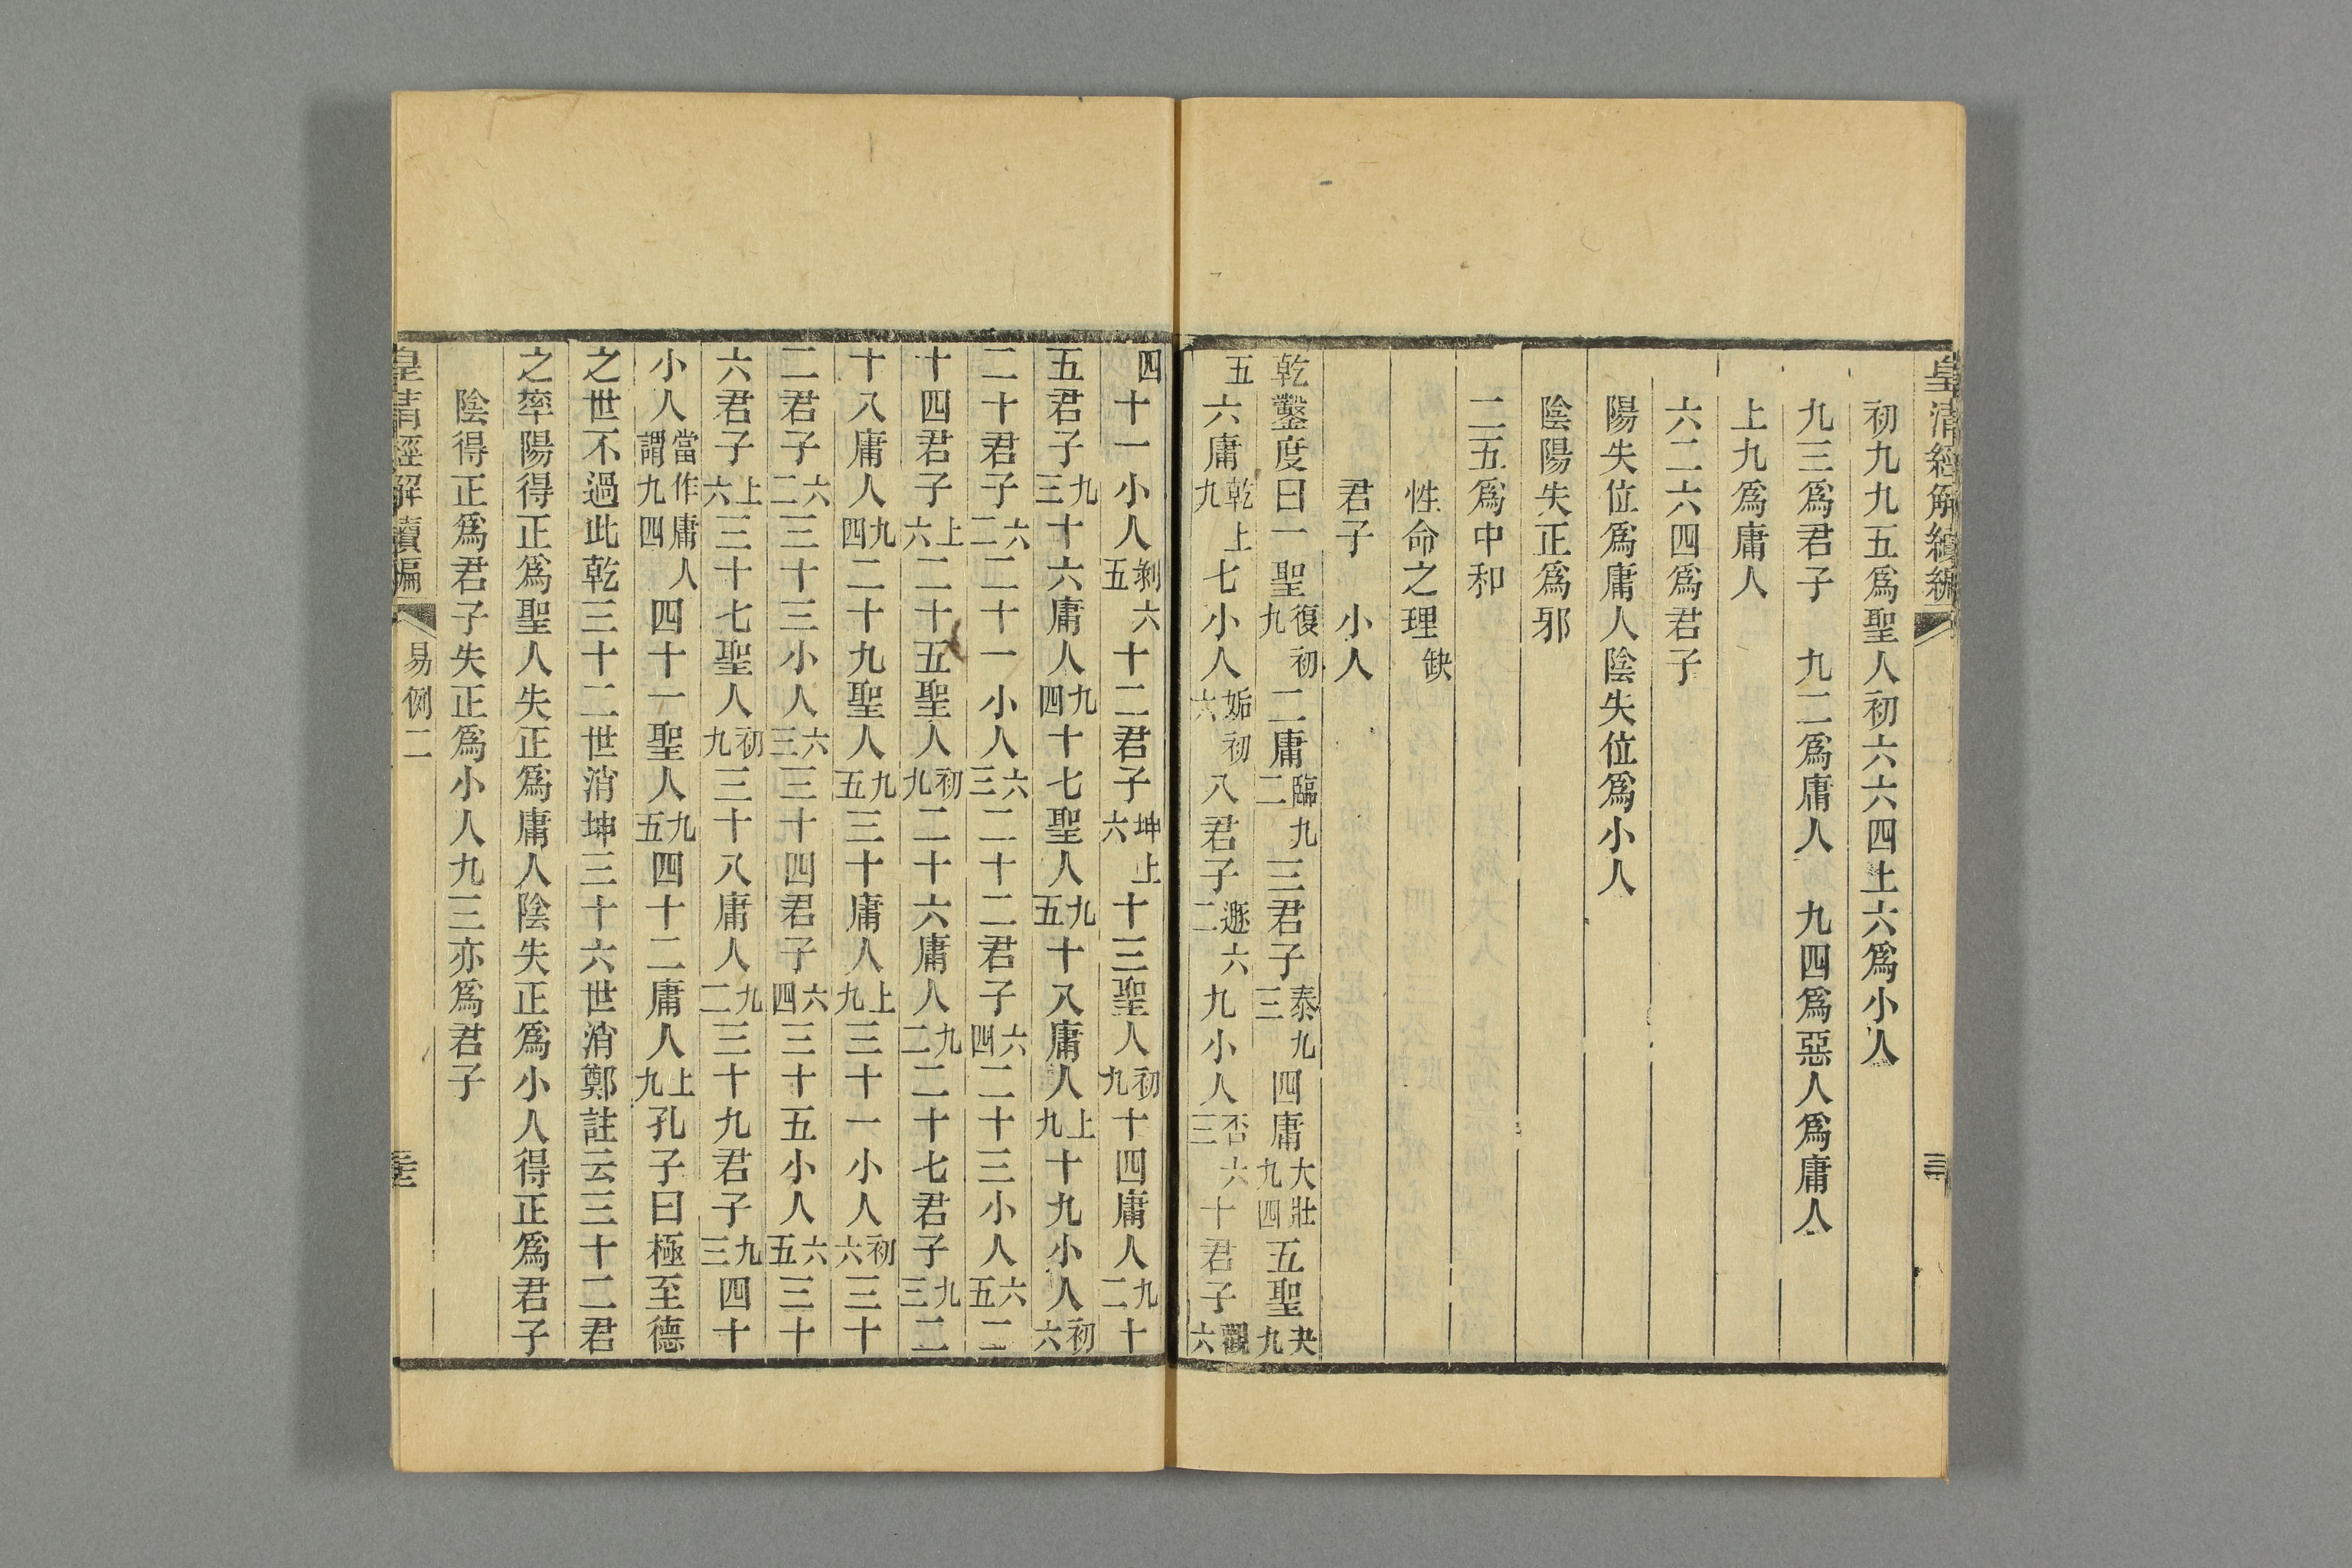 皇清經解續編
初九九五爲聖人初六六四上六爲小人
九三爲君子　九二爲庸人　九四爲惡人爲庸人
上九爲庸人
六二六四爲君子
陽失位爲庸人陰失位爲小人
陰陽失正爲邪
二五爲中和
性命之理缺
君子　小人
乾鑿度曰一聖復初九二庸臨九二三君子泰九三四庸大壯九四五聖夬九
五六庸乾上九七小人姤初六八君子遯六二九小人否六三十君子觀六
四十一小人剝六五十二君子坤上六十三聖人初九十四庸人九二十
五君子九三十六庸人九四十七聖人九五十八庸人上九十九小人初六
二十君子六二二十一小人六三二十二君子六四二十三小人六五二
十四君子上六二十五聖人初九二十六庸人九二二十七君子九三二
十八庸人九四二十九聖人九五三十庸人上九三十一小人初六三十
二君子六二三十三小人六三三十四君子六四三十五小人六五三十
六君子上六三十七聖人初九三十八庸人九二三十九君子九三四十
小人當作庸人謂九四四十一聖人九五四十二庸人上九孔子曰極至德
之世不過此乾三十二世消坤三十六世消鄭註云三十二君
之率陽得正爲聖人失正爲庸人陰失正爲小人得正爲君子
陰得正爲君子失正爲小人九三亦爲君子
皇清經解續編　易例二